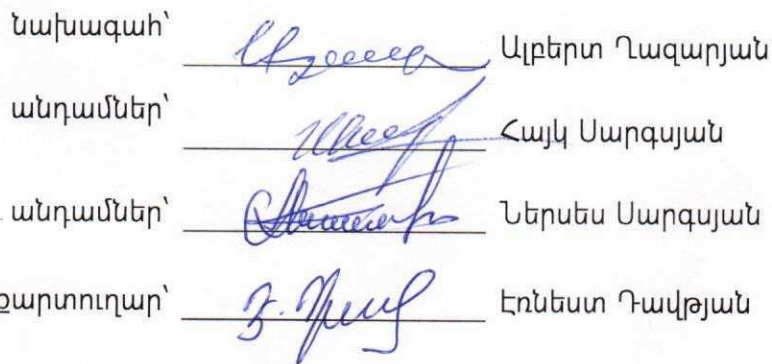 նախագահ՝ Ալբերտ Ղազարյան
անդամներ՝ Հայկ Սարգսյան
անդամներ՝ Ներսես Սարգսյան
քարտուղար՝ Էռնեստ Դավթյան